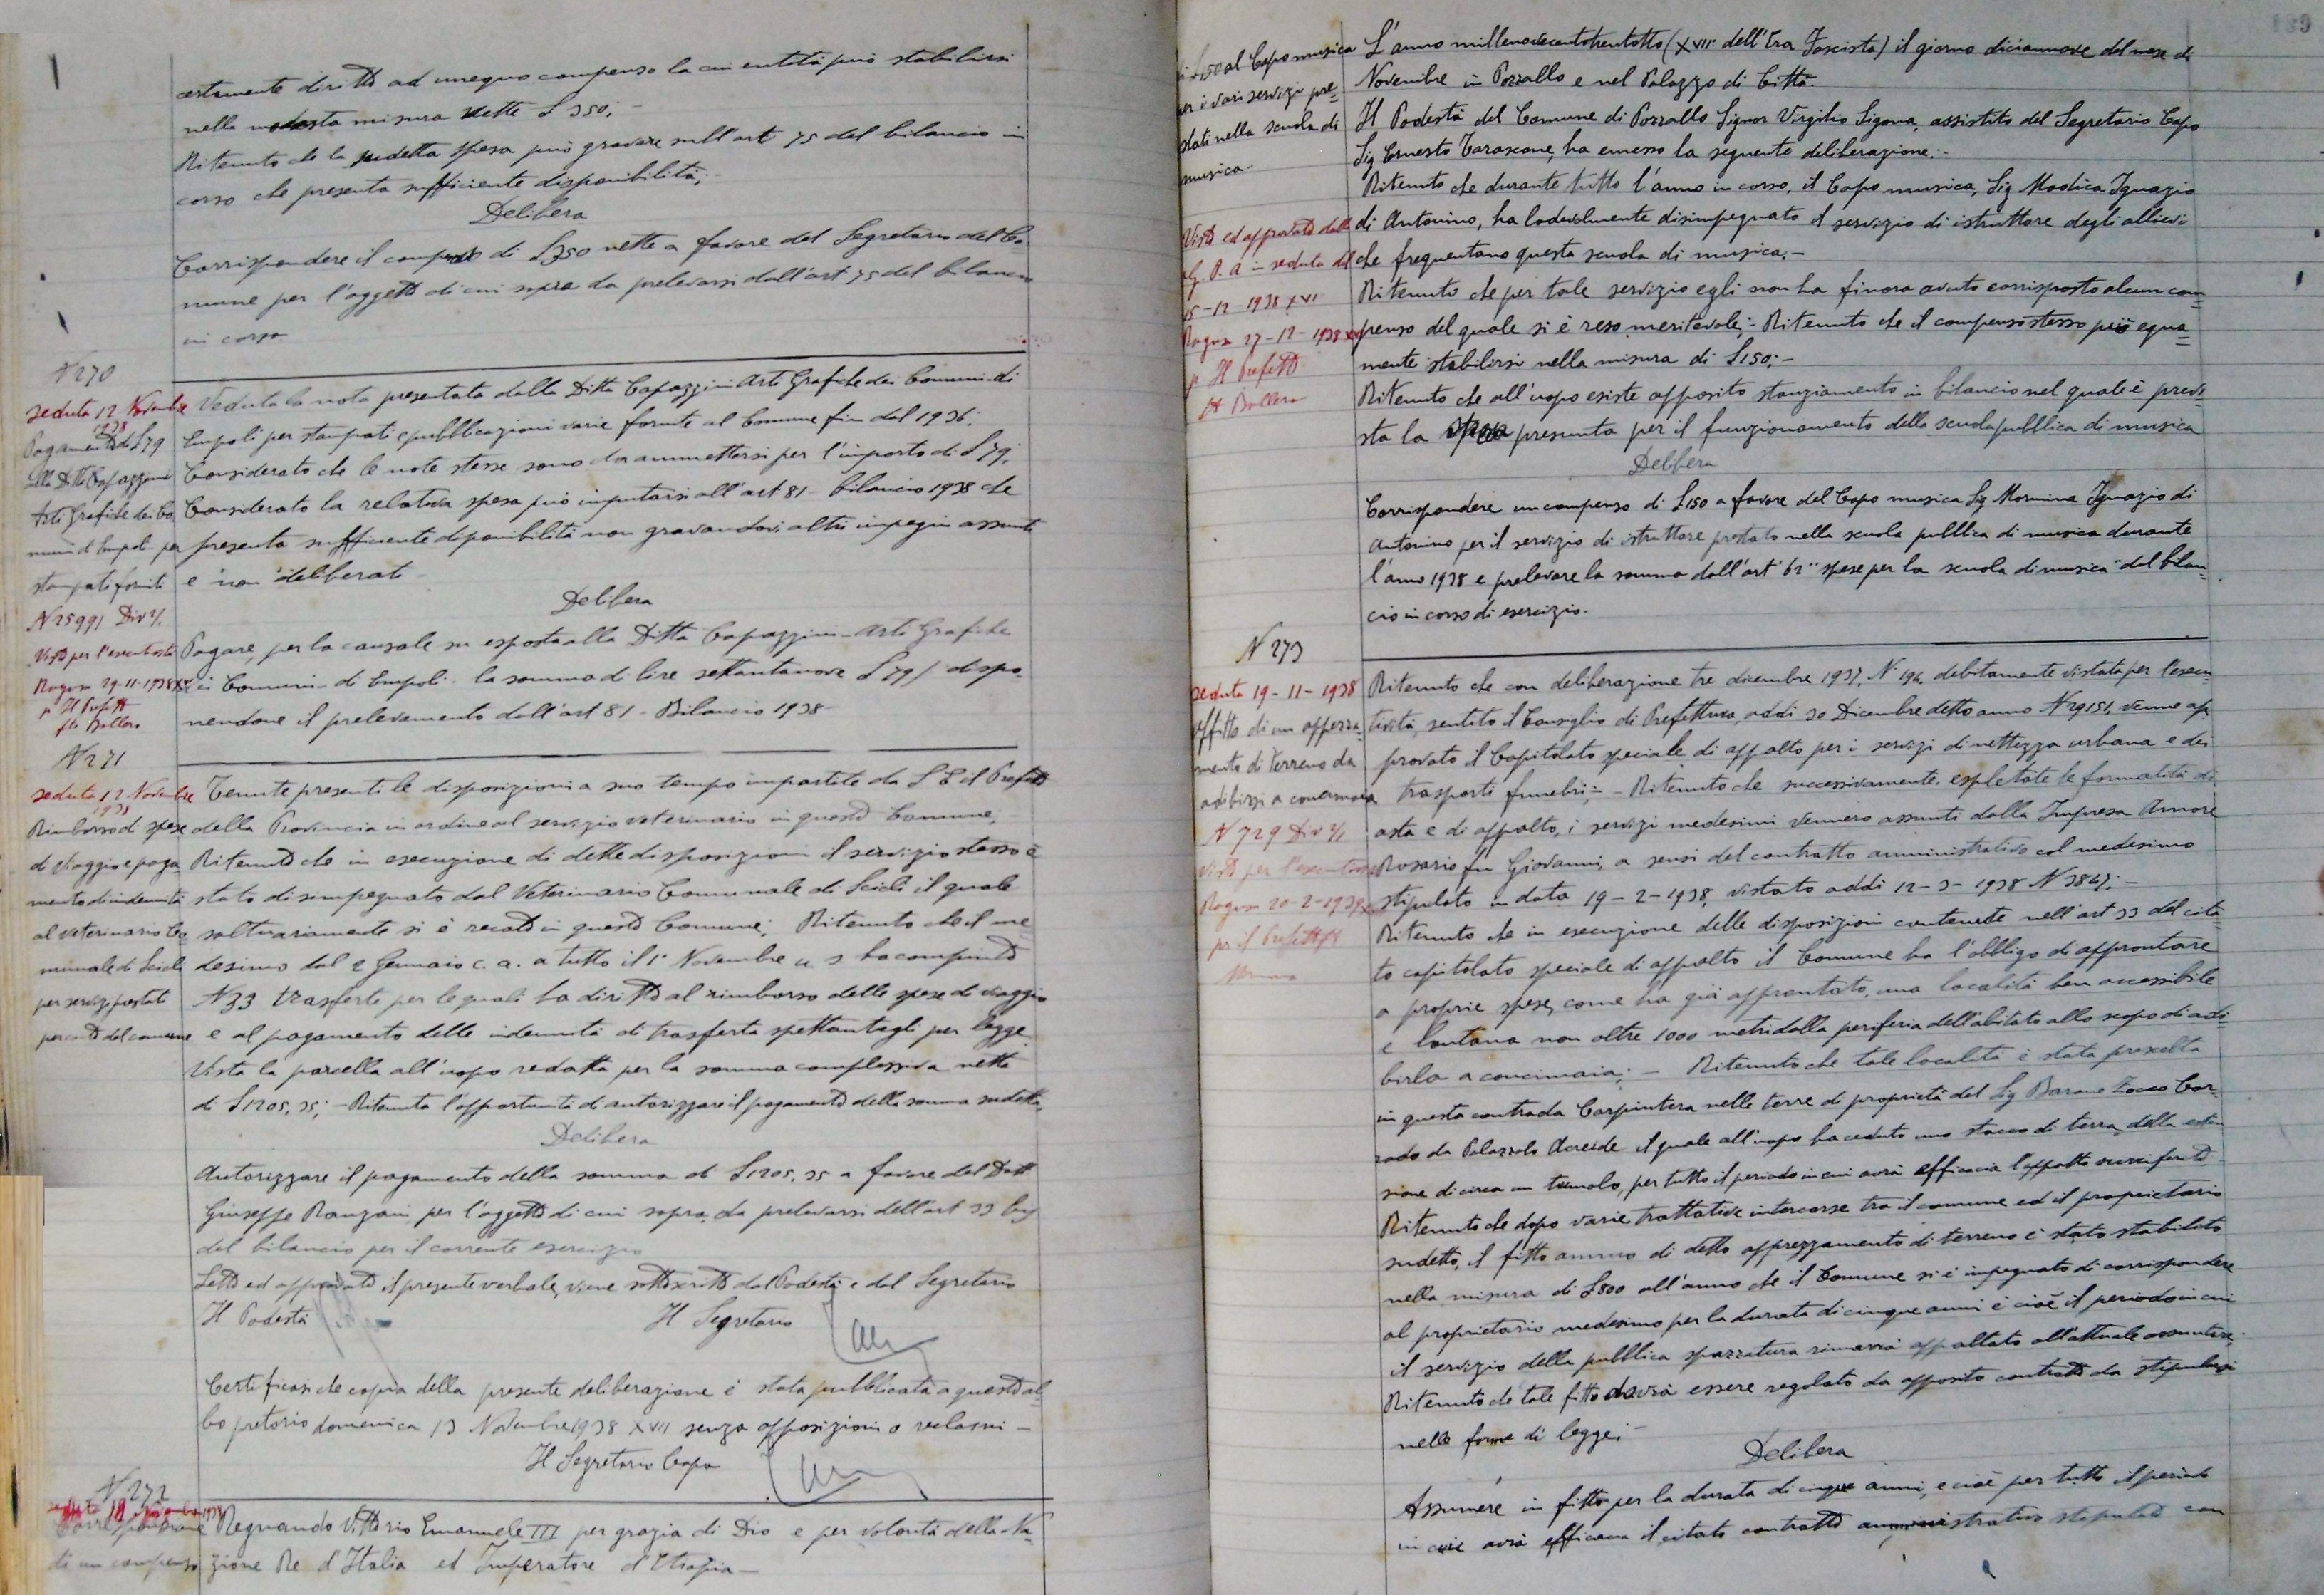 certamente diritto ad un equo compenso la cui entità può stabilirsi
nella modesta misura nette £ 350;-
Ritenuto che la sudetta spesa può gravare sull'art 75 del bilancio in
corso che presenta sufficiente disponibilità;-
Delibera
Corrispondere il compenso di £350 nette a favore del Segretario del Co-
mune per l'oggetto di cui sopra da prelevarsi dall'art 75 del bilancio
in corso
N 270
seduta 12 Novembre
1938
Pagamento di £79
alla Ditta Capazzini
Arti Grafiche dei Co
muni di Empoli per
stampati forniti
N 25991 Div 2/1
Visto per l'esecutorietà
Ragusa 29-11-1938 XVII
p Il Prefetto
Veduta la nota presentata dalla Ditta Capazzini Arti Grafiche dei Comuni di
Empoli per stampati e pubblicazioni varie fornite al Comune fin dal 1936;
Considerato che le note stesse sono da ammettersi per l'importo di £ 79,
Considerato la relativa spesa può imputarsi all'art 81 - bilancio 1938 che
presenta sufficiente disponibilità non gravandovi altri impegni assunti
e non deliberati
Delibera
Pagare, per la causale su esposta alla Ditta Capazzini - Arti Grafiche
dei Comuni - di Empoli - la somma di lire settantanove £ 79/ dispo
nendone il prelevamento dall'art 81 - Bilancio 1938-
N 271
seduta 12 Novembre
1938
Rimborso di spese
di viaggio e paga
mento di indennità
al veterinario Co
munale di Scicli
per servizi prestati
per conto del comune
Tenute presenti le disposizioni a suo tempo impartite da S E il Prefetto
della Provincia in ordine al servizio veterinario in questo Comune;
Ritenuto che in esecuzione di dette disposizioni il servizio stesso è
stato disimpegnato dal Veterinario Comunale di Scicli il quale
saltuariamente si è recato in questo Comune; Ritenuto che il me
desimo dal 2 Gennaio c. a. a tutto il 1° Novembre u s ha compiuto
N 33 trasferte per le quali ha diritto al rimborso delle spese di viaggio
e al pagamento delle indennità di trasferta spettantegli per legge.
Vista la parcella all'uopo redatta per la somma complessiva netta
di £1205,35; - Ritenuta l'opportunità di autorizzare il pagamento della somma sudetta,
Delibera
Autorizzare il pagamento della somma di £1205,35 a favore del Dott
Giuseppe per l'oggetto di cui sopra, da prelevarsi dall'art 33 bis
del bilancio per il corrente esercizio
Letto ed approvato il presente verbale, viene sottoscritto dal Podestà e dal Segretario
Il Podestà Il Segretario
Certificasi che copia della presente deliberazione è stata pubblicata a questo al-
bo pretorio domenica 13 Novembre 1938 XVII senza opposizioni o reclami -
Il Segretario Capo
N 272
seduta 19 Novembre 1938
Corresponsione
di un compenso
Regnando Vittorio Emanuele III per grazia di Dio e per volontà della Na-
zione Re d'Italia ed Imperatore d'Etiopia -
139
di £150 al Capo musica
per i vari servizi pre-
stati nella scuola di
musica-
Visto ed approvato dalla
G. P. A in seduta del
15-12-1938 XVII
Ragusa 27-12-1938 XVII
p Il Prefetto
L'anno millenovecentotrentotto (XVII dell'Era Fascista) il giorno diciannove del mese di
Novembre in Pozzallo e nel Palazzo di Città.
Il Podestà del Comune di Pozzallo Signor Virgilio Sigona, assistito del Segretario Capo
Sig Ernesto Tarascone, ha emesso la seguente deliberazione:-
Ritenuto che durante tutto l'anno in corso, il Capo musica, Sig Modica Ignazio
di Antonino, ha lodevolmente disimpegnato il servizio di istruttore degli allievi
che frequentano questa scuola di musica;-
Ritenuto che per tale servizio egli non ha finora avuto corrisposto alcun com-
penso del quale si è reso meritevole;- Ritenuto che il compenso stesso può equa-
mente stabilirsi nella misura di £150;-
Ritenuto che all'uopo esiste apposito stanziamento in bilancio nel quale è previ-
sta la spesa presunta per il funzionamento della scuola pubblica di musica
Delibera
Corrispondere un compenso di £150 a favore del Capo musica Sig Mormina Ignazio di
Antonino per il servizio di istruttore prestato nella scuola pubblica di musica durante
l'anno 1938 e prelevare la somma dall'art 62 "spese per la scuola di musica" del bilan-
cio in corso di esercizio.
N 273
seduta 19-11-1938
Affitto di un appezza-
mento di terreno da
adibirsi a concimaia
N 729 Div 2/1
Visto per l'esecutorietà
Ragusa 20-2-1939
per il Prefetto
Ritenuto che con deliberazione tre dicembre 1937, N 194, debitamente vistata per l'esecu-
tività, sentito il Consiglio di Prefettura, addì 30 Dicembre detto anno N 29151, venne ap
provato il Capitolato speciale di appalto per i servizi di nettezza urbana e dei
trasporti funebri;- Ritenuto che successivamente, espletate le formalità di
asta e di appalto, i servizi medesimi vennero assunti dalla Impresa Amore
Rosario fu Giovanni, a sensi del contratto amministrativo col medesimo
stipulato in data 19-2-1938, vistato addì 12-3-1938 N 3847;-
Ritenuto che in esecuzione delle disposizioni contenute nell'art 33 del cita-
to capitolato speciale di appalto il Comune ha l'obbligo di approntare
a proprie spese, come ha già approntato, una località ben accessibile
e lontana non oltre 1000 metri dalla periferia dell'abitato allo scopo di adi-
birla a concimaia;- Ritenuto che tale località è stata prescelta
in questa contrada Carpintera nelle terre di proprietà del Sig Barone Zocco Cor-
rado da Palazzolo Acreide il quale all'uopo ha ceduto uno stacco di terra, della esten
sione di circa un tumolo, per tutto il periodo in cui avrà efficacia l'appalto surriferito
Ritenuto che dopo varie trattative intercorse tra il comune ed il proprietario
sudetto, il fitto annuo di detto apprezzamento di terreno è stato stabilito
nella misura di £800 all'anno che il Comune si è impegnato di corrispondere
al proprietario medesimo per la durata di cinque anni è cioè il periodo in cui
il servizio della pubblica spazzatura rimarrà appaltato all'attuale assuntore;
Ritenuto che tale fitto dovrà essere regolato da apposito contratto da stipularsi
nelle forme di legge;-
Delibera
Assumere in fitto per la durata di cinque anni, e cioè per tutto il periodo
in cui avrà efficacia il citato contratto amministrativo stipulato con